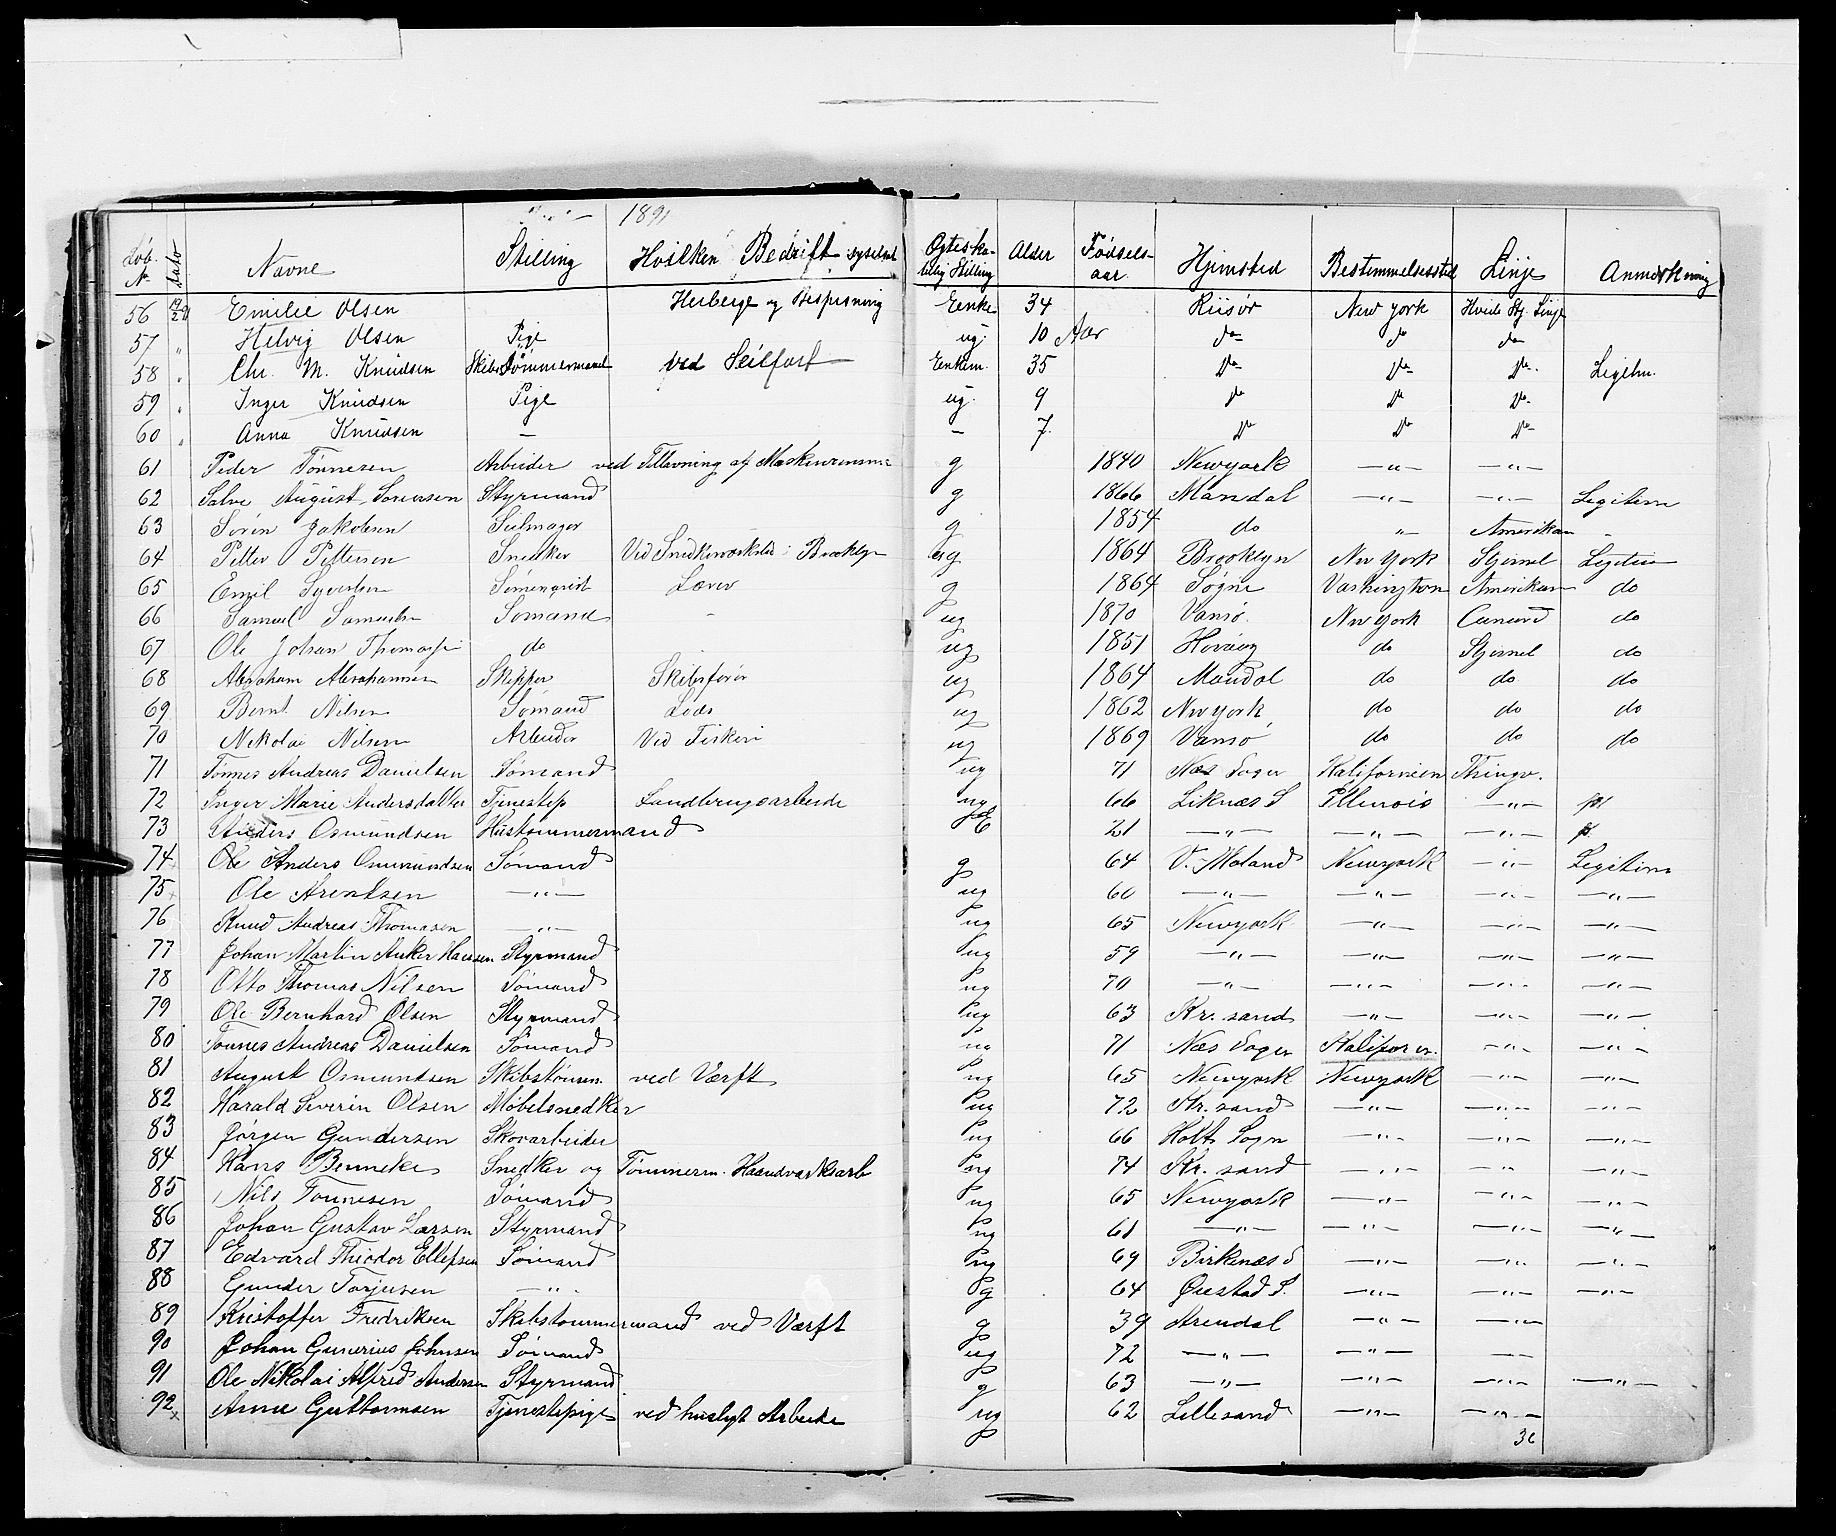 1891
Løb. N. Dato Navne Stilling Hvilken Bedrift sysselsat Ægteska- belig Stilling Alder Fødsels- aar Hjemsted Bestemmelsessted Linje Anmerkning
56 19/2 Emilie Olsen Herberge og Bespisning Enke 34 Riisør New York Hvide Stj. Linje
57 " Helvig Olsen Pige ug. 10 Aar do do do
58 " Chr. M. Knudsen Skibstømmermand ved Seilfart Enkem. 35 do do do Legitm.
59 " Inger Knudsen Pige ug. 9 do do do
60 " Anna Knudsen — — 7 do do do
61 Peder Tønnesen Arbeider ved Tillavning af g 1840 Newyork —"— —"—
62 Salve August Sørensen Styrmand g 1866 Mandal —"— —"— Legitem
63 Sørin Jakobsen Seilmager g 1854 do " Amerikan "
64 Petter Pettersen Snedker Ved Snedkerværksted i Brooklyn ug 1864 Brooklyn New York Stjernel Legitim
65 Emil Syvertsen Lærer g 1864 Søgne Vashington Amerikan do
66 Samuel Samuelsen Sømand — ug 1870 Vansø. New York Cunard do
67 Ole Johan Thomassen do ug 1851 Høvaag do Stjernel do
68 Abraham Abrahamsen Skipper Skibsfører ug 1864 Mandal do do do
69 Bernt Nilsen Sømand Lods ug 1862 New york do do do
70 Nikolai Nilsen Arbeider Ved Fiskeri ug 1869 Vansø do do do
71 Tønnes Andreas Danielsen Sømand ug 71 Næs Sogn Kalifornien Thingv.
72 Inger Marie Andersdatter Tjenestep Landbrugsarbeide ug 66 Liknæs S Illinois —"—
73 Anders Osmundsen Hustømmermand 21 —"— —"— —"—
74 Ole Anders Osmundsen Sømand g 64 V. Moland Newyork —"— Legitim
75 Ole Arentsen —"— ug 60 —"— —"— —"— —"—
76 Knud Andreas Thomasen —"— ug 65 Newyork —"— —"— —"—
77 Johan Martin Anker Hansen Styrmand ug 59 —"— —"— —"— —"—
78 Otto Thomas Nilsen Sømand ug 70 —"— —"— —"— —"—
79 Ole Bernhard Olsen Styrmand ug 63 Kr. sand —"— —"— —"—
80 Tønnes Andreas Danielsen Sømand ug 71 Næs Sogn Kaliforn. —"— —"—
81 August Osmundsen Skibstømm. ved Værft ug 65 Newyork Newyork —"— —"—
82 Harald Severin Olsen Møbelsnedker ug 72 Kr. sand —"— —"— —"—
83 Jørgen Gundersen Skovarbeider ug 66 Holt Sogn —"— —"— —"—
84 Hans Benneke Snedker og Tømmerm. Haandværksarb ug 74 Kr. sand —"— —"— —"—
85 Nils Tønnesen Sømand ug 65 Newyork —"— —"— —"—
86 Johan Gustav Larsen Styrmand ug 61 —"— —"— —"— —"—
87 Edvard Theodor Ellefsen Sømand ug 69 Birkenæs S —"— —"— —"—
88 Gunder Torjusen —"— g 64 Øiestad S. —"— —"— —"—
89 Kristoffer Fredriksen Skibstømmermand ved Værft g 39 Arendal —"— —"—
90 Johan Gunerius Johnsen Sømand ug 72 —"— —"— —"—
91 Ole Nikolai Alfred Andersen Styrmand g 63 —"— —"— —"— —"—
92 x Anne Guttormsen Tjenestepige ved husligt Arbeide ug 62 Lillesand —"— —"—